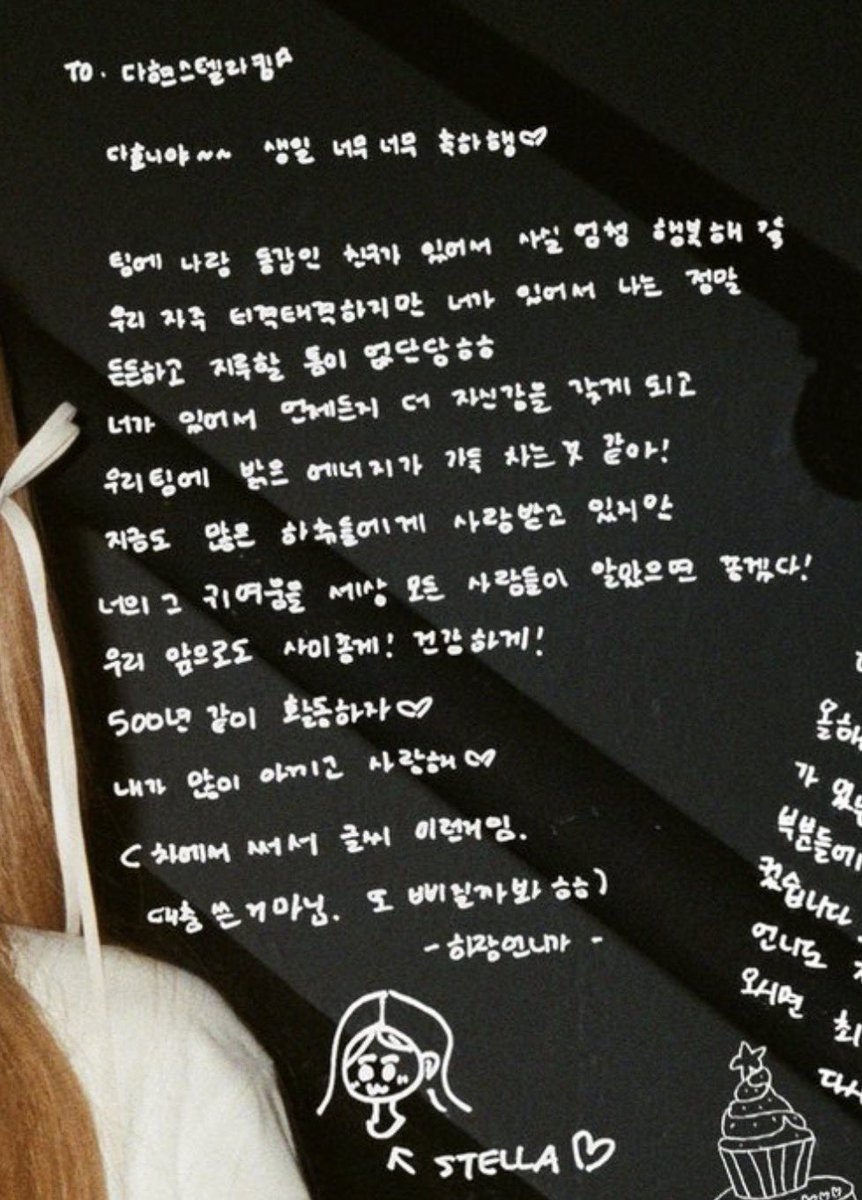 TO. 다현스텔라킴☆
다효니야~~ 생일 너무너무 축하행♡
팀에 나랑 동갑인 친구가 있어서 사실 엄청 행복해
우리 자주 티격태격하지만 너가 있어서 나는 정말
든든하고 지루할 틈이 없단당ㅎㅎ
너가 있어서 언제든지 더 자신감을 갖게 되고
우리팀에 밝은 에너지가 가득 차는 것 같아!
지금도 많은 하츄들에게 사랑받고 있지만
너의 그 귀여움을 세상 모든 사람들이 알았으면 좋겠다!
우리 앞으로도 사이좋게! 건강하게!
500년 같이 활동하자♡
내가 많이 아끼고 사랑해♡
(차에서 써서 글씨 이런거임.
대충 쓴거아님. 또 삐질까봐 ㅎㅎ)
- 히장언니가 -
STELLA♡
올해
가 있
북분들에
겠습니다
언니도
오시면 최
다시